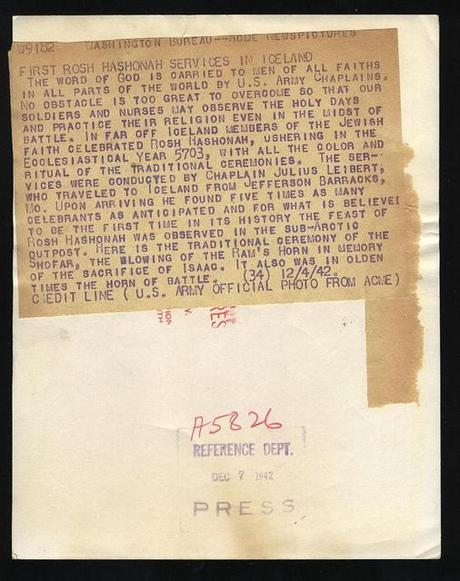 W9182    WASHINGTON BUREAU--ACME NEWSPICTURES
FIRST ROSH HASHONAH SERVICES IN ICELAND
THE WORD OF GOD IS CARRIED TO MEN OF ALL FAITHS
IN ALL PARTS OF THE WORLD BY U.S. ARMY CHAPLAINS.
NO OBSTACLE IS TOO GREAT TO OVERCOME SO THAT OUR
SOLDIERS AND NURSES MAY OBSERVE THE HOLY DAYS
AND PRACTICE THEIR RELIGION EVEN IN THE MIDST OF
BATTLE. IN FAR OFF ICELAND MEMBERS OF THE JEWISH
FAITH CELEBRATED ROSH HASHONAH, USHERING IN THE
ECCLESIASTICAL YEAR 5703, WITH ALL THE COLOR AND
RITUAL OF THE TRADITIONAL CEREMONIES. THE SER-
VICES WERE CONDUCTED BY CHAPLAIN JULIUS LEIBERT,
WHO TRAVELED TO ICELAND FROM JEFFERSON BARRACKS,
MO. UPON ARRIVING HE FOUND FIVE TIMES AS MANY
CELEBRANTS AS ANTICIPATED AND FOR WHAT IS BELIEVE
TO BE THE FIRST TIME IN ITS HISTORY THE FEAST OF
ROSH HASHONAH WAS OBSERVED IN THE SUB-ARCTIC
OUTPOST. HERE IS THE TRADITIONAL CEREMONY OF THE
SHOFAR, THE BLOWING OF THE RAM'S HORN IN MEMORY
OF THE SACRIFICE OF ISAAC. IT ALSO WAS IN OLDEN
TIMES THE HORN OF BATTLE.    (34) 12/4/42.
CREDIT LINE (U.S. ARMY OFFICIAL PHOTO FROM ACME)
A5826
REFERENCE DEPT.
DEC 7 1942
PRESS